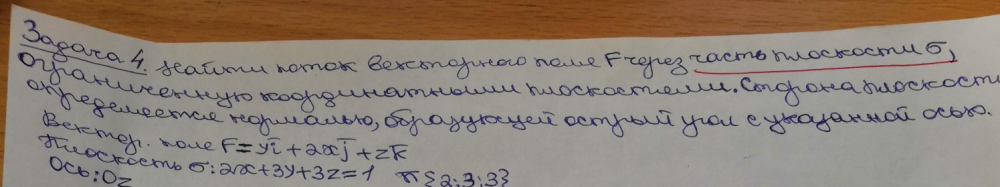 Задача 4. Найти поток векторного поля F через часть плоскости σ,
ограниченную координатными плоскостями. Сторона плоскости
определяется нормалью, образующей острый угол с указанной осью.
Вектор. поле F = yi̅ + 2xj̅ + zk̅
Плоскость σ: 2x+3y+3z=1 n̅{2;3;3}
Ось: Oz